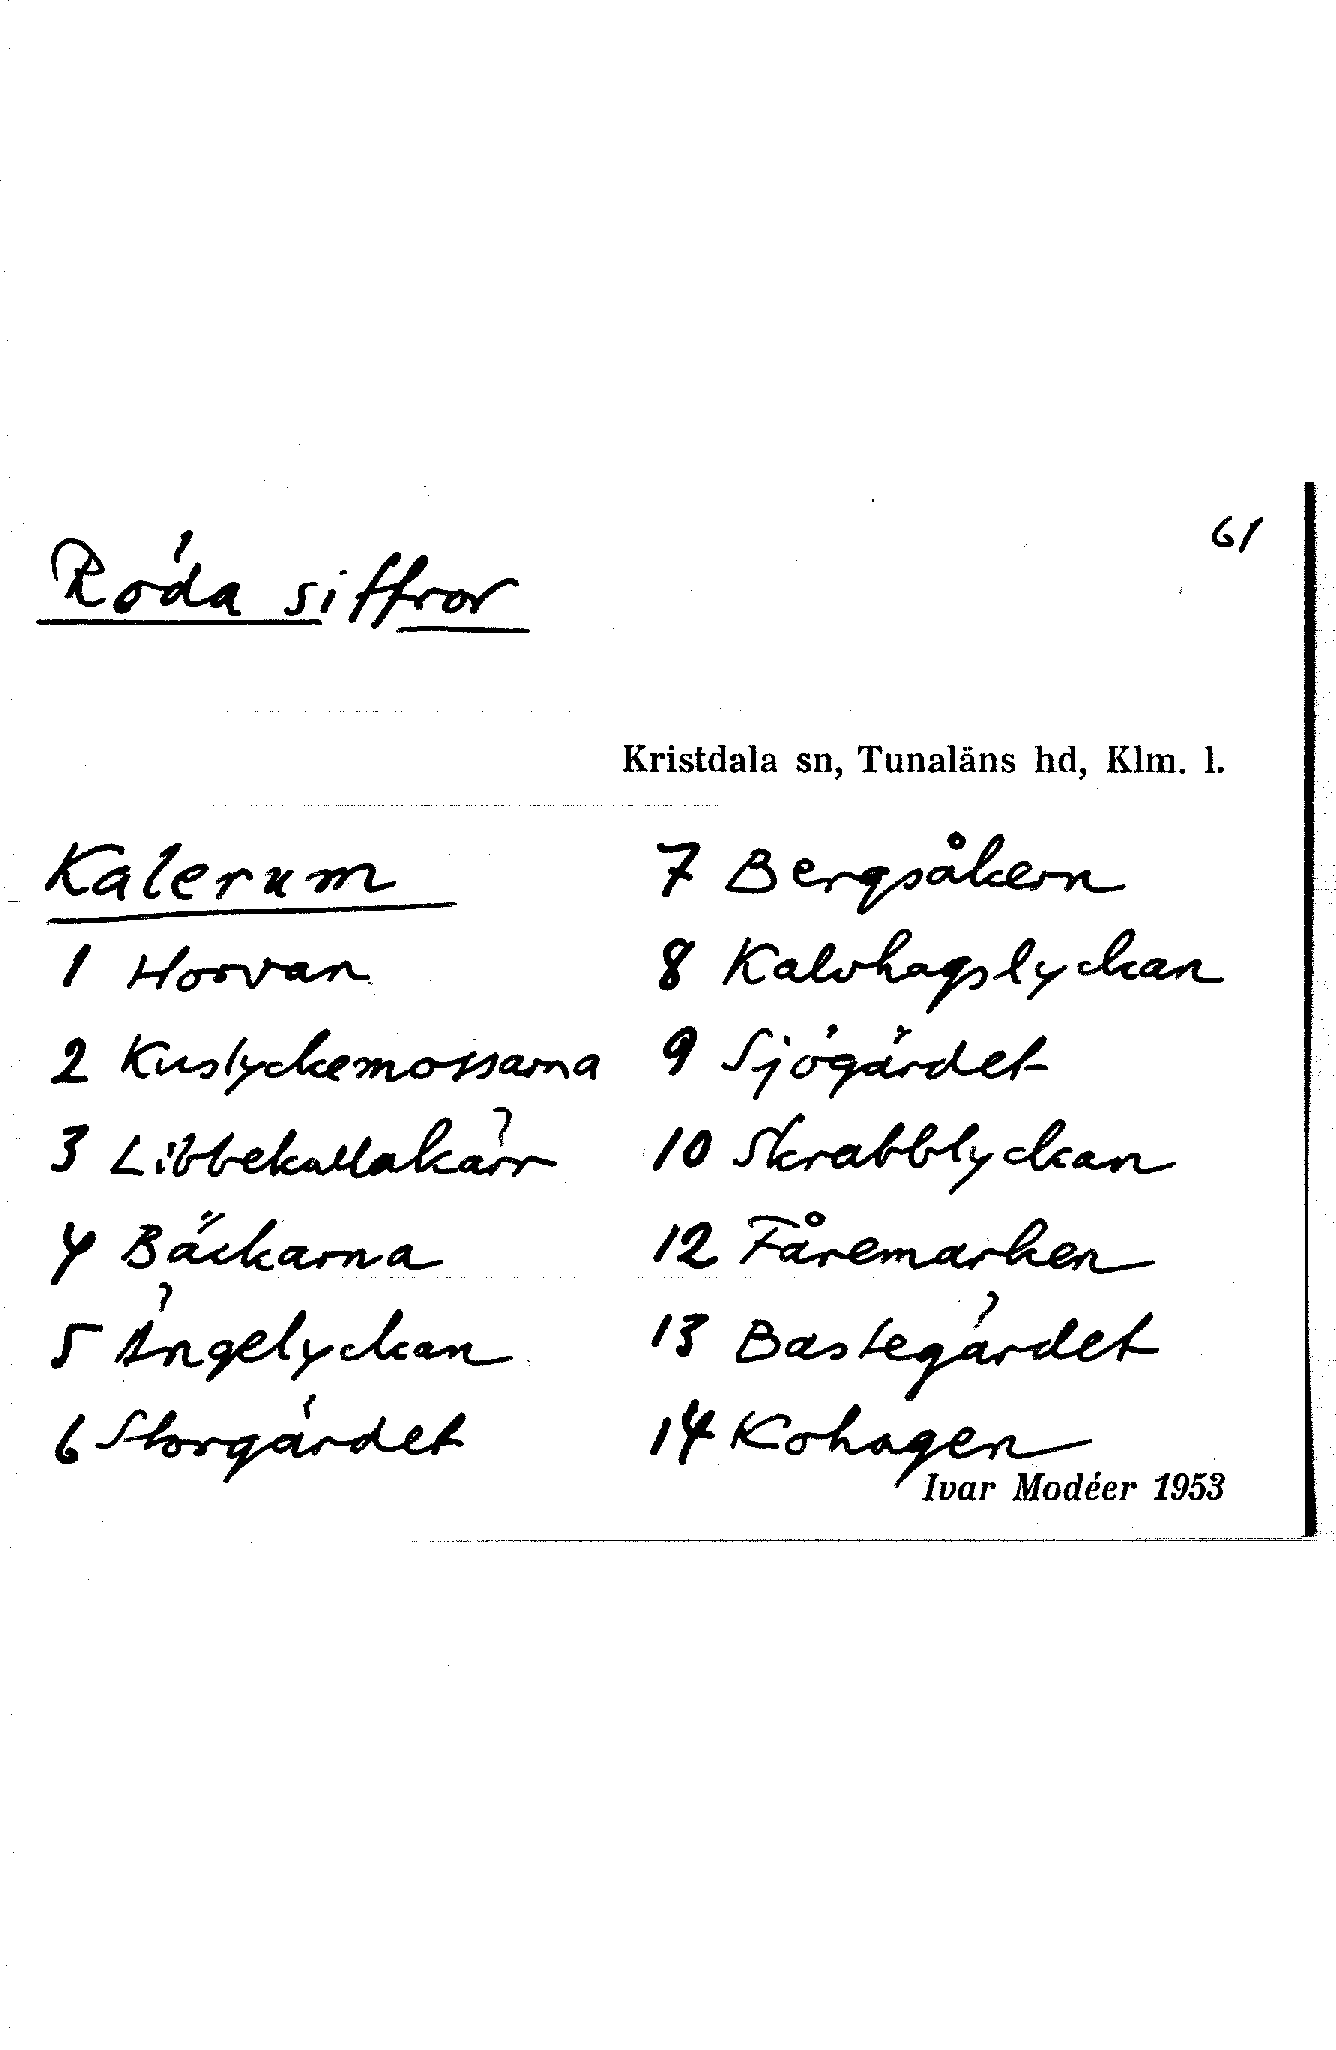 61
Röda siffror
Kristdala sn, Tunaläns hd, Klm. l.
Kalerum
1 Horvan
2 Kuslyckemossarna
3 Libbekullakärr
4 Bäckarna
5 Ängelyckan
6 Storgärdet
7 Bergsåkern
8 Kalvhagslyckan
9 Sjögärdet
10 Skrabblyckan
12 Fåremarken
13 Bastegärdet
14 Kohagen
Ivar Modéer 1953